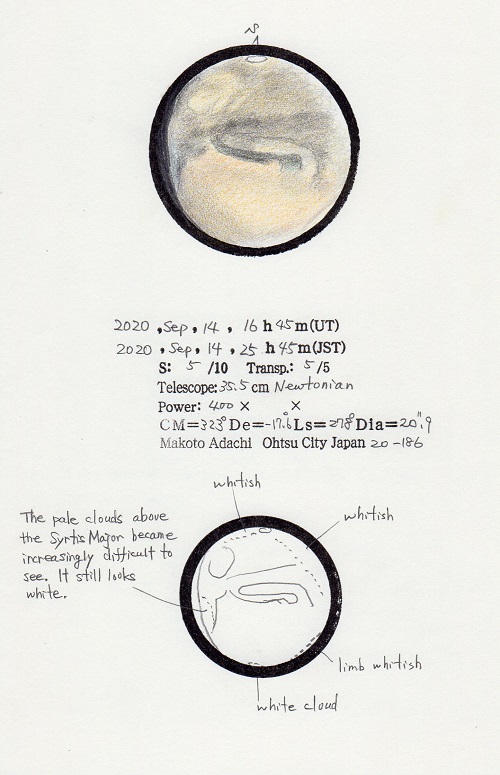 S
2020 , Sep , 14 , 16 h 45 m(UT)
2020 , Sep , 14 , 25 h 45 m(JST)
S: 5 /10 Transp.: 5 /5
Telescope: 35.5 cm Newtonian
Power: 400 × ×
CM=323° De=-17.6° Ls=278° Dia=20".9
Makoto Adachi Ohtsu City Japan 20-186
whitish
whitish
The pale clouds above
the Syrtis Major became
increasingly difficult to
see. It still looks
white.
limb whitish
white cloud